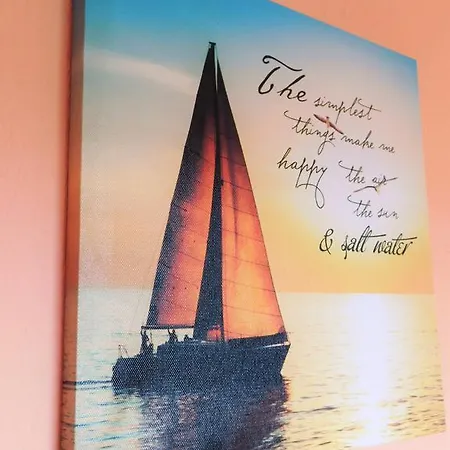 The simplest
things make me
happy the air
the sun
& salt water